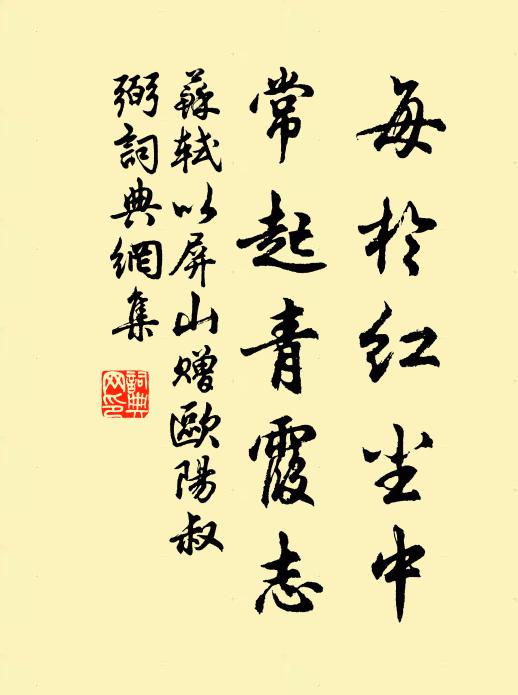 每於红尘中
常起青霞志
蘇軾以屏山贈歐陽叔
弼詞典網集
詞典
网印